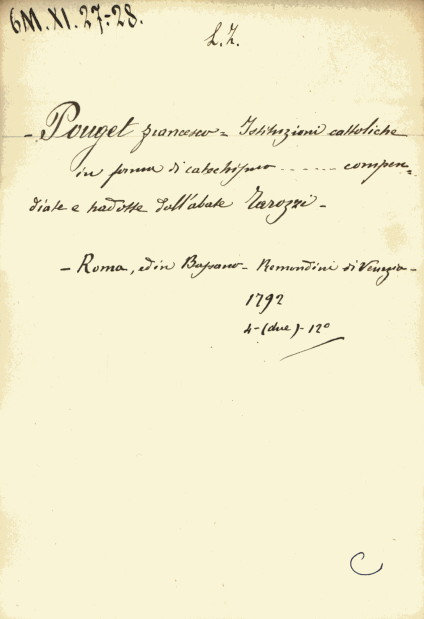 6M.XI.27-28.
L.Z.
- Pouget Francesco = Istituzioni cattoliche
in forma di catechismo ...... compen=
diate e tradotte dall'abate Tarozzi -
- Roma, ed in Bassano - Remondini di Venezia -
1792
4-(due)- 12º
C